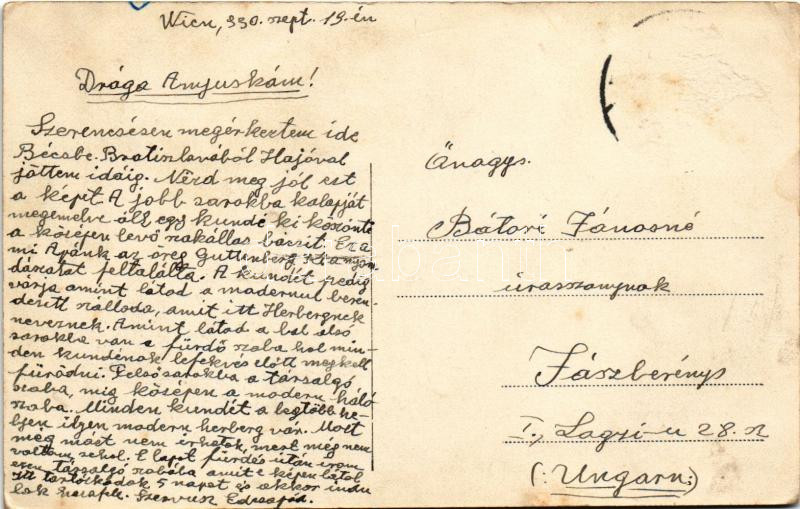 Wien, 930. szept. 19.-én
Drága Anyuskám!
Szerencsésen megérkeztem ide
Bécsbe. Bratislavából Hajóval
jöttem idáig. Nézd meg jól ezt
a képet. A jobb sarokba kalapját
megemelve áll egy kundé ki köszönti
a középen levő szakállas bácsit. Ez a
mi Apánk az öreg Guttenberg, ki a nyom-
dászatot feltalálta. A kundét pedig
várja amint látod a modernül beren-
dezett szálloda, amit itt Herbergnek
neveznek. Amint látod a bal alsó
sarokba van a fürdő szoba hol min-
den kundénak lefekvés előtt meg kell
fürödni. Felső sarokba a társalgó
szoba, míg középen a modern háló
szoba. Minden kundét a legtöbb he-
lyen ilyen modern herberg vár. Most
még mást nem írhatok, mert még nem
voltam sehol. E lapot fürdés után írom
ezen társalgó szobába amit e képen látol
Itt tartózkodok 5 napot és akkor indu
lok hazafelé. Szervusz
Őnagys.
Bátori Jánosné
úrasszonynak
Jászberény
I., Lagzi-u 28. sz
(:Ungarn:)